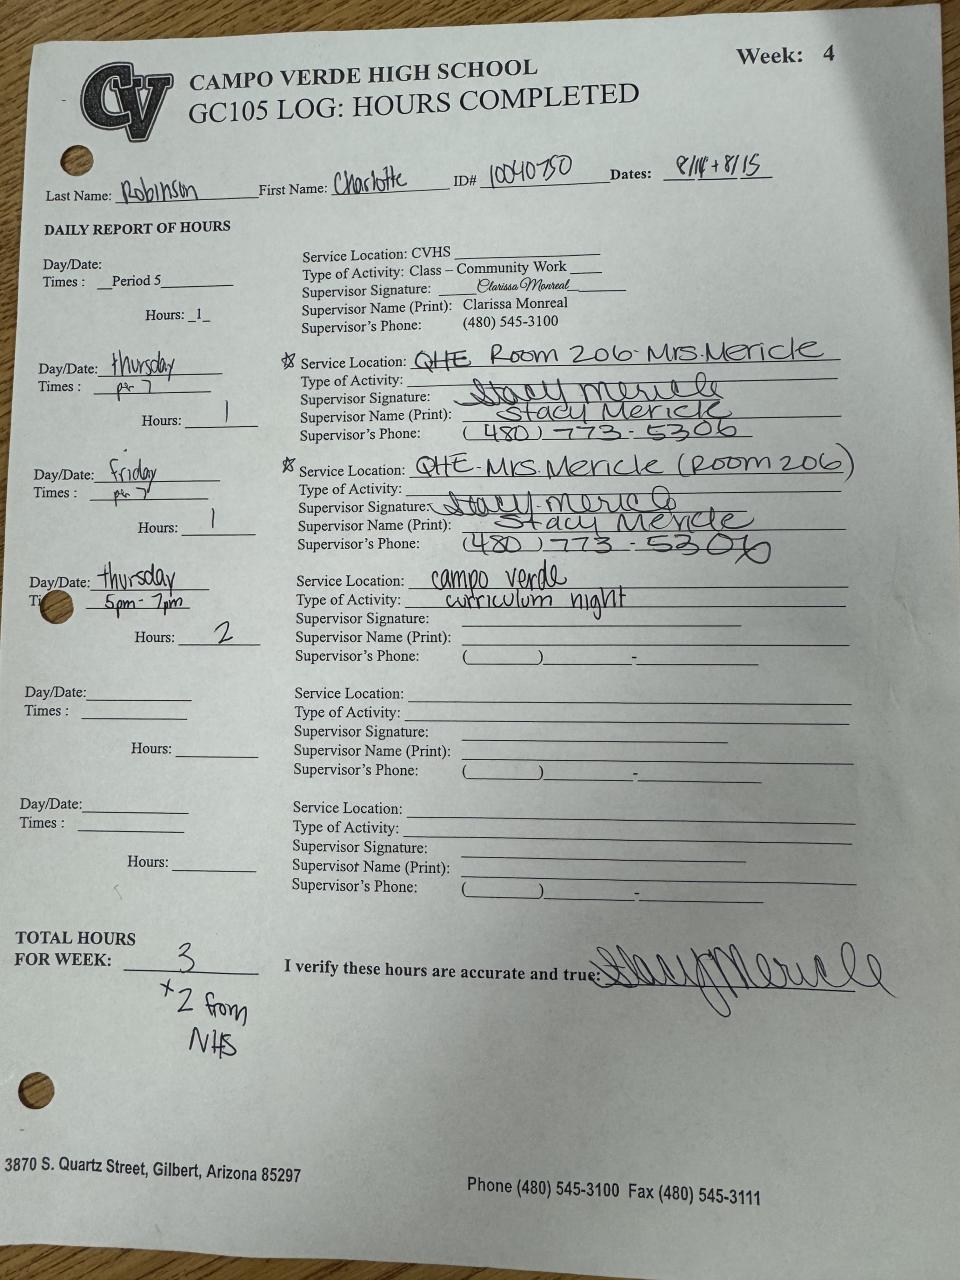 Week: 4
CV
CAMPO VERDE HIGH SCHOOL
GC105 LOG: HOURS COMPLETED
Last Name: Robinson First Name: Charlotte ID# 10040750 Dates: 8/14 + 8/15
DAILY REPORT OF HOURS
Day/Date:
Times : Period 5
Hours: 1
Service Location: CVHS
Type of Activity: Class – Community Work
Supervisor Signature: Clarissa Monreal
Supervisor Name (Print): Clarissa Monreal
Supervisor's Phone: (480) 545-3100
Day/Date: thursday
Times : per 7
Hours: 1
☆ Service Location: QHE Room 206- Mrs. Mericle
Type of Activity:
Supervisor Signature: Stacy Mericle
Supervisor Name (Print): Stacy Mericle
Supervisor's Phone: (480) 773-5306
Day/Date: friday
Times : per 7
Hours: 1
☆ Service Location: QHE- Mrs. Mericle (Room 206)
Type of Activity:
Supervisor Signature: Stacy Mericle
Supervisor Name (Print): Stacy Mericle
Supervisor's Phone: (480) 773-5306
Day/Date: thursday
Ti 5pm - 7pm
Hours: 2
Service Location: campo verde
Type of Activity: curriculum night
Supervisor Signature:
Supervisor Name (Print):
Supervisor's Phone: ( ) -
Day/Date:
Times :
Hours:
Service Location:
Type of Activity:
Supervisor Signature:
Supervisor Name (Print):
Supervisor's Phone: ( ) -
Day/Date:
Times :
Hours:
Service Location:
Type of Activity:
Supervisor Signature:
Supervisor Name (Print):
Supervisor's Phone: ( ) -
TOTAL HOURS
FOR WEEK: 3
+2 from
NHS
I verify these hours are accurate and true: Stacy Mericle
3870 S. Quartz Street, Gilbert, Arizona 85297
Phone (480) 545-3100 Fax (480) 545-3111